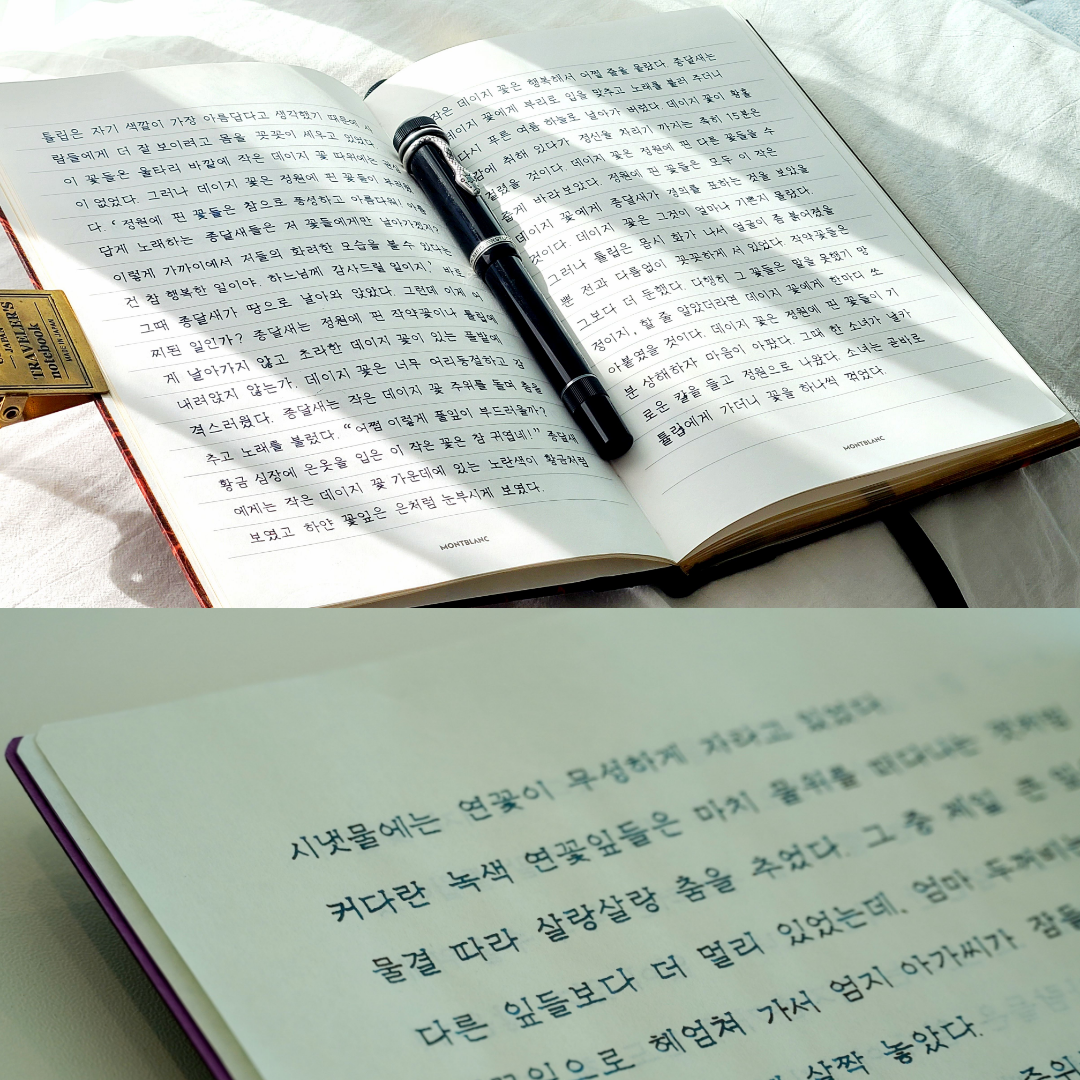 튤립은 자기 색깔이 가장 아름답다고 생각했기 때문에
람들에게 더 잘 보이려고 몸을 꼿꼿이 세우고 있었다
이 꽃들은 울타리 바깥에 작은 데이지 꽃 따위에는
이 없었다. 그러나 데이지 꽃은 정원에 핀 꽃들이 부러웠
다. ‘정원에 핀 꽃들은 참으로 풍성하고 아름다워! 아름
답게 노래하는 종달새들은 저 꽃들에게만 날아가겠지?
이렇게 가까이에서 저들의 화려한 모습을 볼 수 있다는
건 참 행복한 일이야. 하느님께 감사드릴 일이지’ 바로
그때 종달새가 땅으로 날아와 앉았다. 그런데 이게 어
찌된 일인가? 종달새는 정원에 핀 작약꽃이나 튤립에
게 날아가지 않고 초라한 데이지 꽃이 있는 풀밭에
내려앉지 않는가. 데이지 꽃은 너무 어리둥절하고 감
격스러웠다. 종달새는 작은 데이지 꽃 주위를 돌며 춤을
추고 노래를 불렀다. “어쩜 이렇게 풀잎이 부드러울까?
황금 심장에 은옷을 입은 이 작은 꽃은 참 귀엽네!” 종달새
에게는 작은 데이지 꽃 가운데에 있는 노란색이 황금처럼
보였고 하얀 꽃잎은 은처럼 눈부시게 보였다.
MONTBLANC
작은 데이지 꽃은 행복해서 어쩔 줄을 몰랐다. 종달새는
데이지 꽃에게 부리로 입을 맞추고 노래를 불러 주더니
다시 푸른 여름 하늘로 날아가 버렸다. 데이지 꽃이 황홀
감에 취해 있다가 정신을 차리기 까지는 족히 15분은
걸렸을 것이다. 데이지 꽃은 정원에 핀 다른 꽃들을 수
줍게 바라보았다. 정원에 핀 꽃들은 모두 이 작은
데이지 꽃에게 종달새가 경의를 표하는 것을 보았을
것이다. 데이지 꽃은 그것이 얼마나 기쁜지 몰랐다.
그러나 튤립은 몹시 화가 나서 얼굴이 좀 붉어졌을
뿐 전과 다름없이 꼿꼿하게 서 있었다. 작약꽃들은
그보다 더 둔했다. 다행히 그 꽃들은 말을 못했기 망
정이지, 할 줄 알았더라면 데이지 꽃에게 한마디 쏘
아붙였을 것이다. 데이지 꽃은 정원에 핀 꽃들이 기
분 상해하자 마음이 아팠다. 그때 한 소녀가 날카
로운 칼을 들고 정원으로 나왔다. 소녀는 곧바로
튤립에게 가더니 꽃을 하나씩 꺾었다.
MONTBLANC
TRAVELER'S
notebook
MADE IN JAPAN
시냇물에는 연꽃이 무성하게 자라고 있었다.
커다란 녹색 연꽃잎들은 마치 물위를 떠다니는 것처럼
물결 따라 살랑살랑 춤을 추었다. 그 중 제일 큰
다른 잎들보다 더 멀리 있었는데, 엄마 두꺼비는
꽃잎으로 헤엄쳐 가서 엄지 아가씨가 잠든
살짝 놓았다.